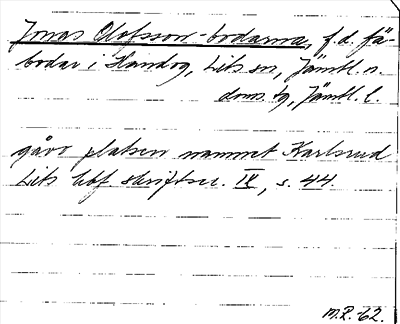 Jonas Olofsson-bodarna, f.d. fä-
bodar i Handog, Lits sn, Jämtl. n.
doms. tg, Jämtl. l.
gåvo platsen namnet Karlsrud
Lits hbf. skriftser. IV, s. 44.
M.P. -62.